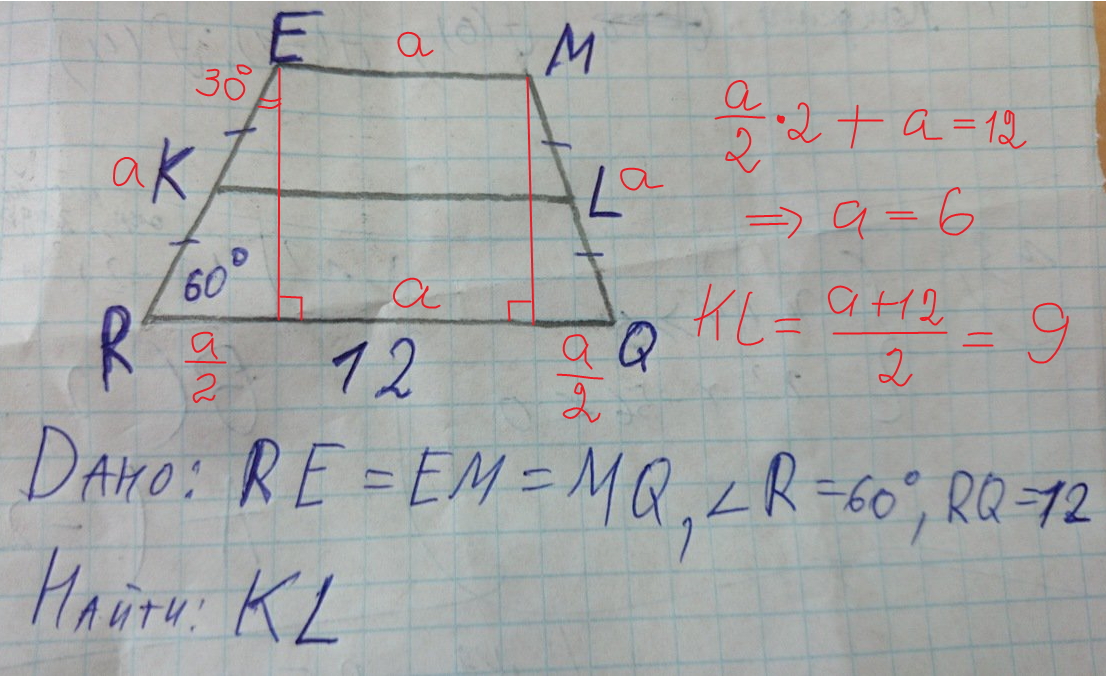 E a M
30°
a K L a
60°
a
R a/2 12 a/2 Q
a/2 · 2 + a = 12
⇒ a = 6
KL = (a+12)/2 = 9
Дано: RE = EM = MQ, ∠R = 60°, RQ = 12
Найти: KL